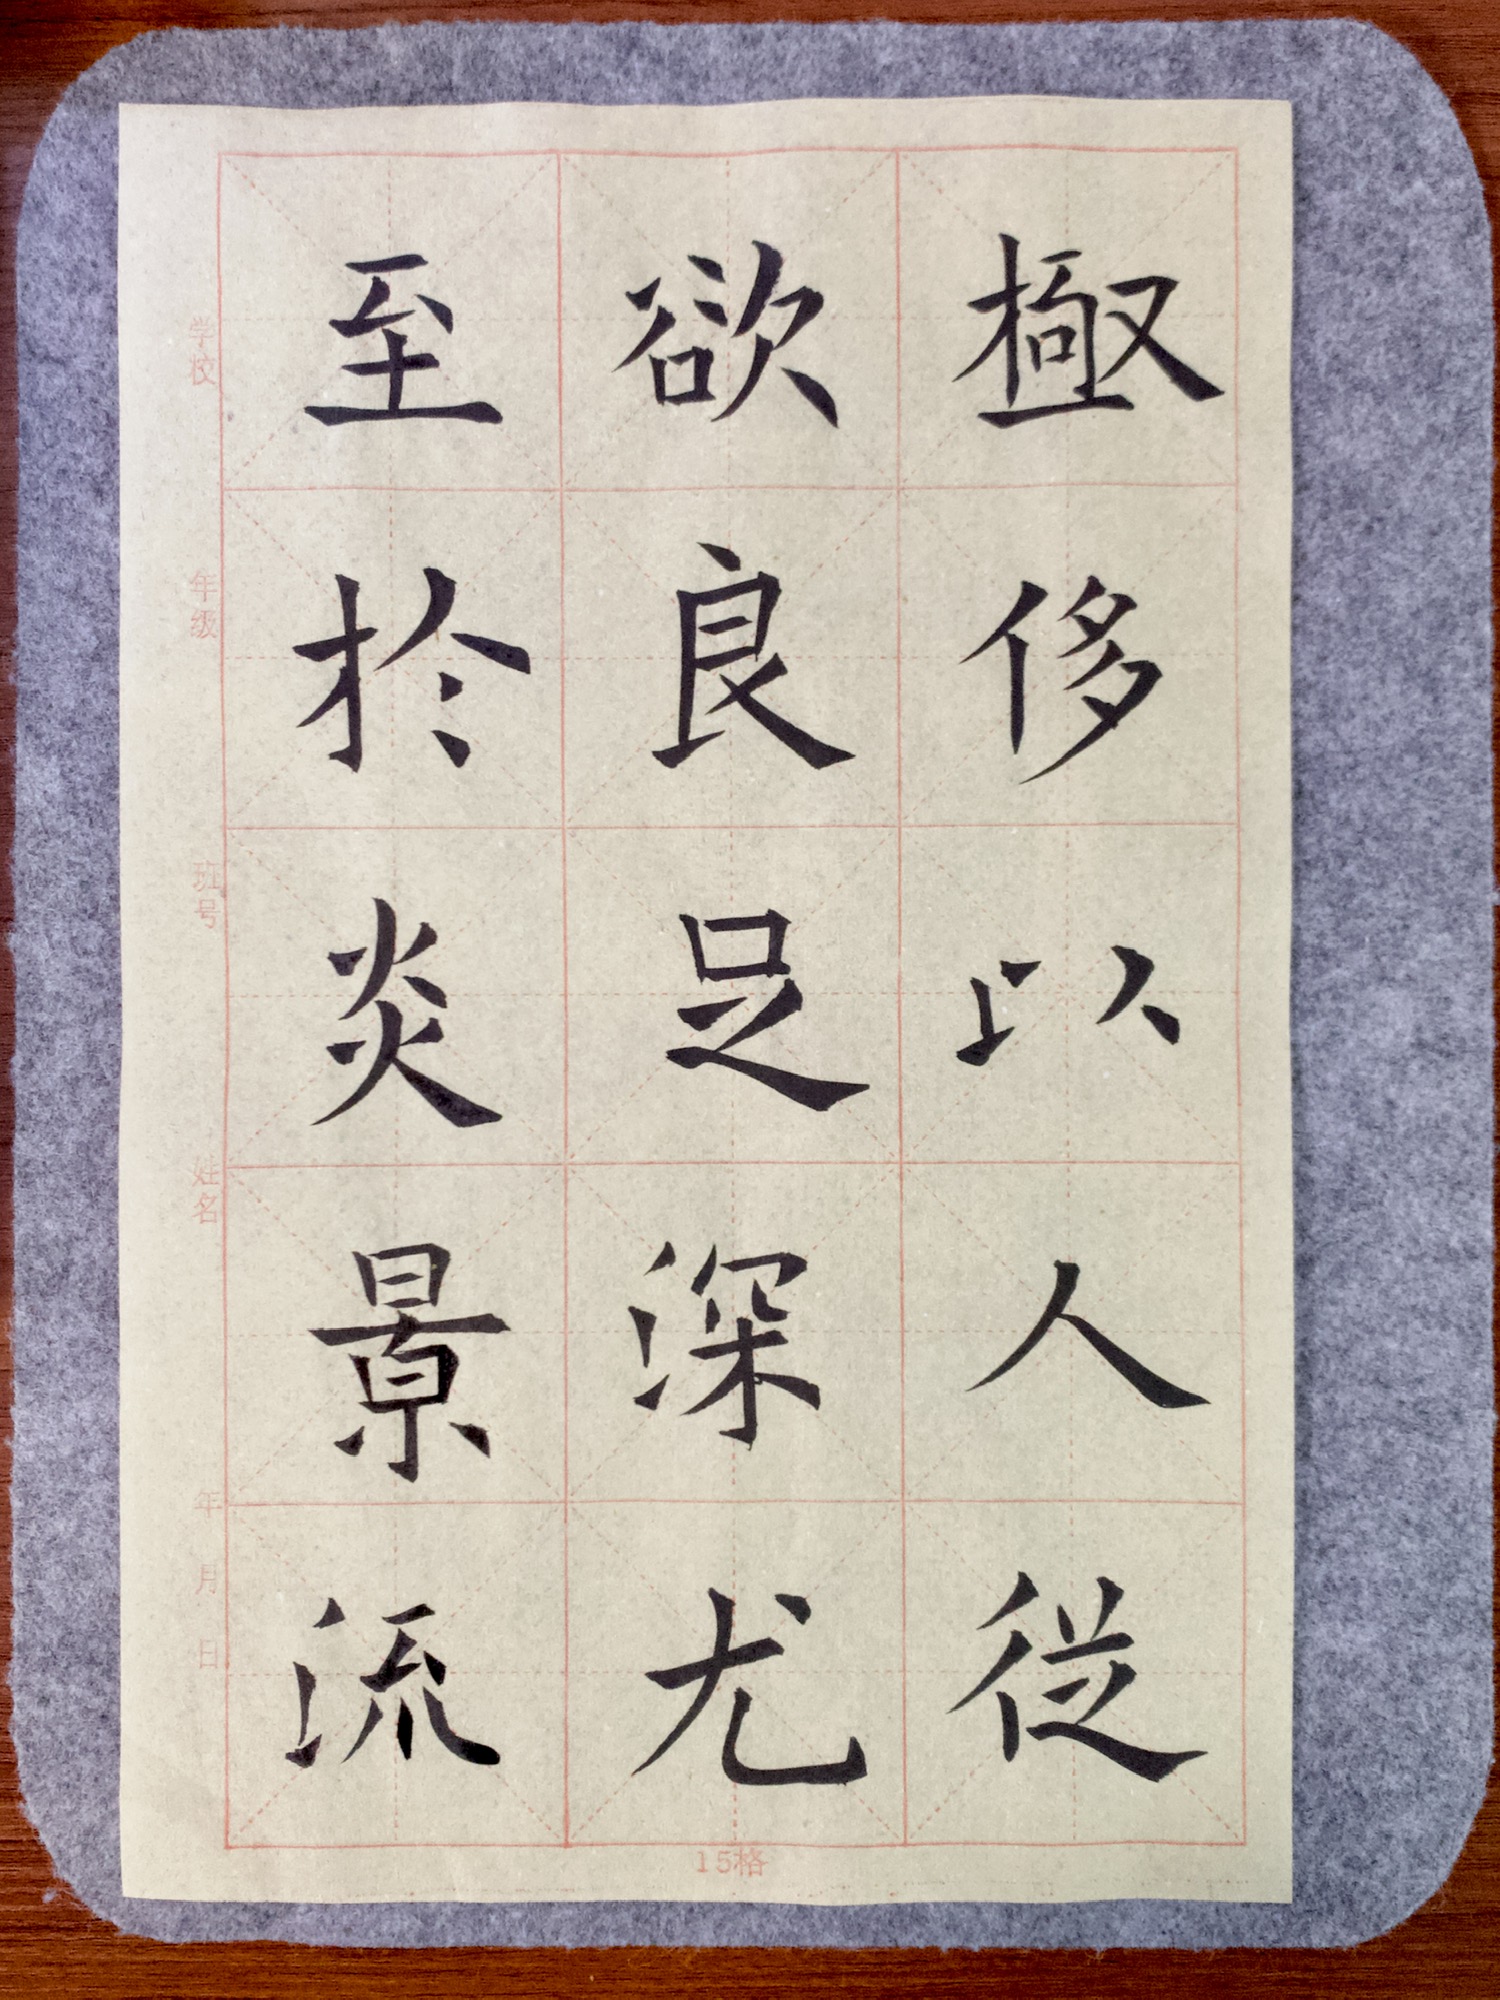 極侈以人從
欲良足深尤
至於炎景流
学校
年级
班号
姓名
年 月 日
15格